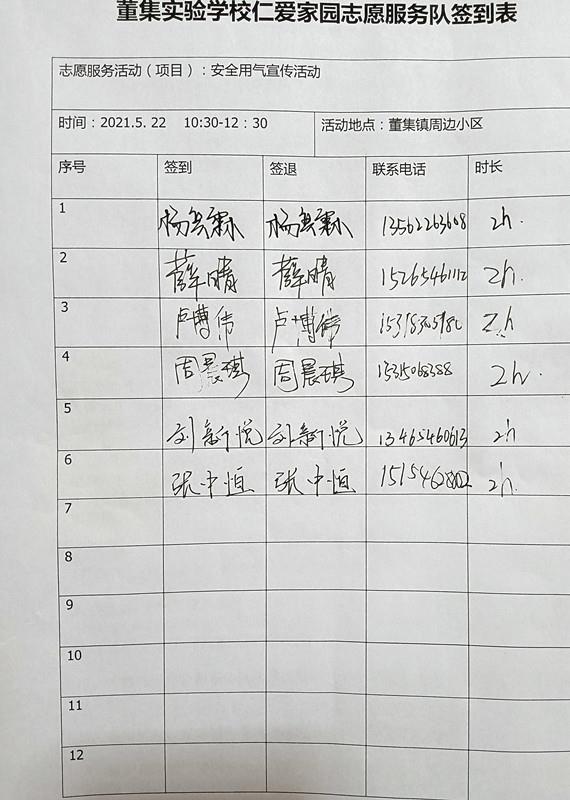 董集实验学校仁爱家园志愿服务队签到表
志愿服务活动（项目）：安全用气宣传活动
时间：2021.5. 22 10:30-12：30 活动地点：董集镇周边小区
序号 签到 签退 联系电话 时长
1 13562263608 2h.
2 薛晴 薛晴 15265461112 2h
3 卢博伟 卢博伟 2h
4 周晨琪 周晨琪 2h.
5 刘新悦 刘新悦 13465460613 2h
6 张中恒 张中恒 2h.
7
8
9
10
11
12